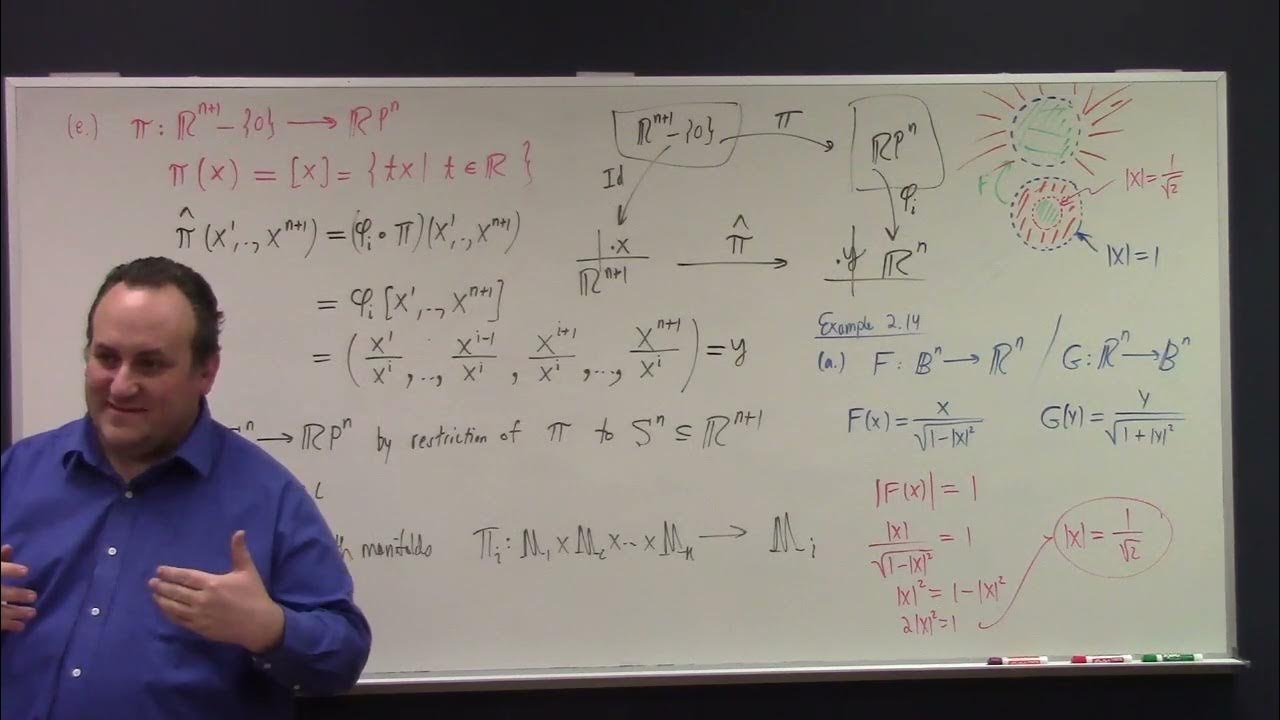 (e.) π: ℝⁿ⁺¹ – {0} ⟶ ℝPⁿ
π(x) = [x] = { tx | t ∈ ℝ }
π̂(x¹,.., xⁿ⁺¹) = (φᵢ∘π)(x¹,.., xⁿ⁺¹)
= φᵢ[x¹,.., xⁿ⁺¹]
= (x¹/xⁱ ,.., xⁱ⁻¹/xⁱ , xⁱ⁺¹/xⁱ ,.., xⁿ⁺¹/xⁱ) = y
ⁿ ⟶ ℝPⁿ by restriction of π to Sⁿ ⊆ ℝⁿ⁺¹
manifolds πᵢ: M₁ × M₂ × ... × Mₙ ⟶ Mᵢ
ℝⁿ⁺¹ – {0} π ℝPⁿ
Id φᵢ
·x π̂ ·y ℝⁿ
ℝⁿ⁺¹
F |x| = 1/√2
|x| = 1
Example 2.14
(a.) F: Bⁿ ⟶ ℝⁿ / G: ℝⁿ ⟶ Bⁿ
F(x) = x/√(1-|x|²) G(y) = y/√(1+|y|²)
|F(x)| = 1
|x|/√(1-|x|²) = 1 |x| = 1/√2
|x|² = 1-|x|²
2|x|² = 1